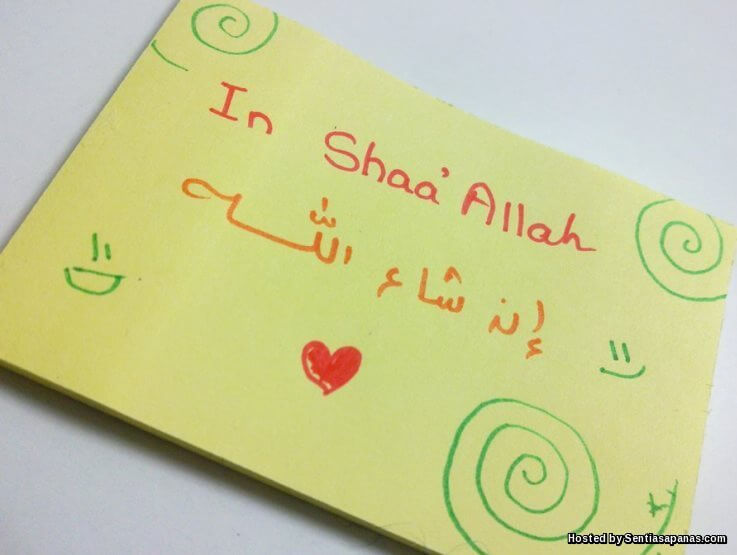 In Shaa' Allah
إن شاء اللّه
Hosted by Sentiasapanas.com